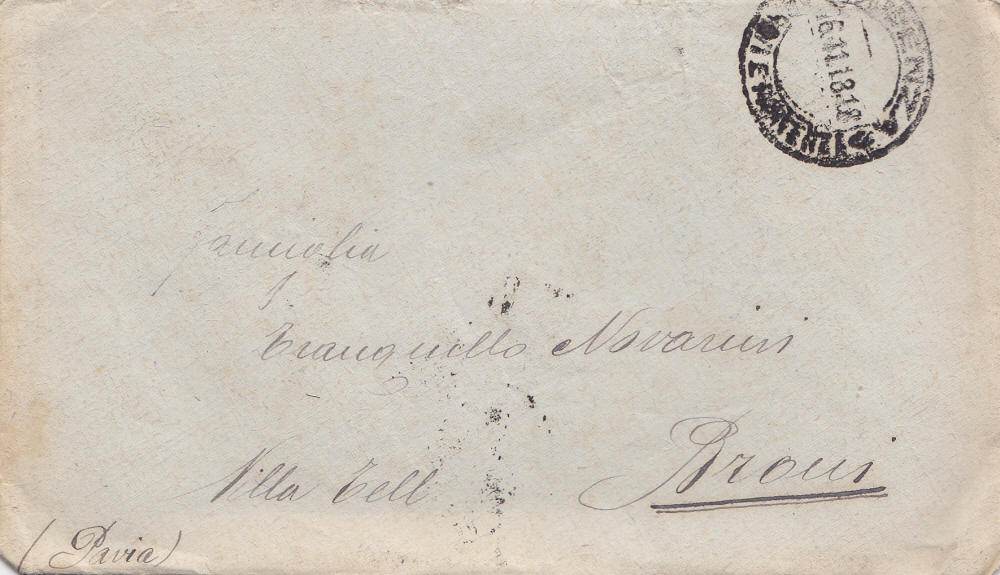 16.11.18.18
Famiglia
Tranquillo Novarini
Villa Tell
Broni
(Pavia)